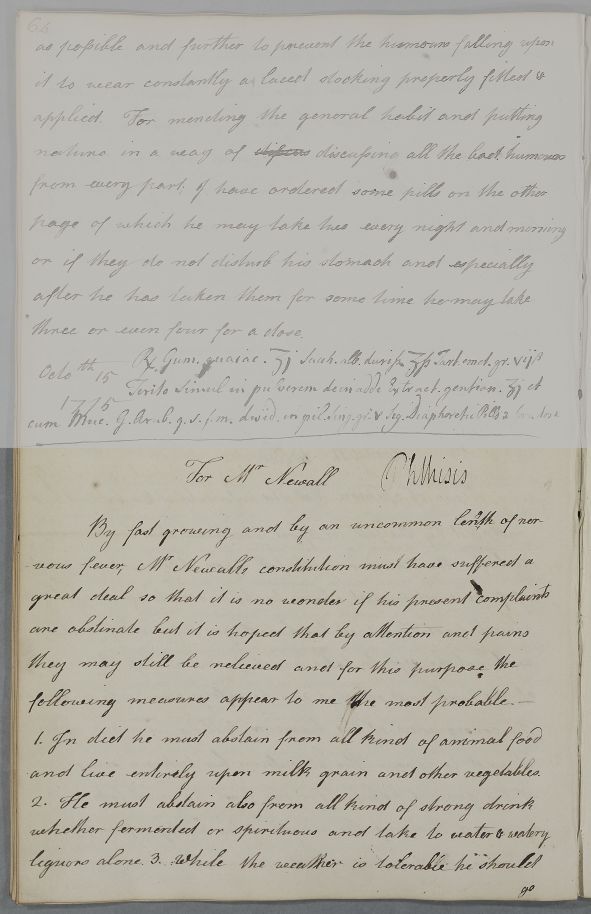 64
as possible and further to prevent the humours falling upon
it to wear constantly a laced stocking properly fitted &
applied. For mending the general habit and putting
nature in a way of discussing all the bad humours
from every part. I have ordered some pills on the other
page of which he may take two every night and morning
or if they do not disturb his stomach and especially
after he has taken them for some time he may take
three or even four for a dose.
Octo th 15 ℞ Gum. guaiac. ʒj Sach. alb. duriss. ʒss Tart. emet. gr.
1775 Terito simul in pulverem dein adde Extract. gentian. ʒj et
cum Muc. G. Arab. q. s. f. m. divid. in pil. sing. gr. v Sig. Diaphoretic Pills
For Mr Newall Phthisis
By fast growing and by an uncommon lenth of ner-
-vous fever, Mr Newalls constitution must have suffered a
great deal so that it is no wonder if his present complaints
are obstinate but it is hoped that by attention and pains
they may still be relieved and for this purpose the
following measures appear to me the most probable.—
1. In diet he must abstain from all kind of animal food
and live entirely upon milk grain and other vegetables.
2. He must abstain also from all kind of strong drink
whether fermented or spirituous and take to water & watery
liquors alone. 3. While the weather is tolerable he should
go